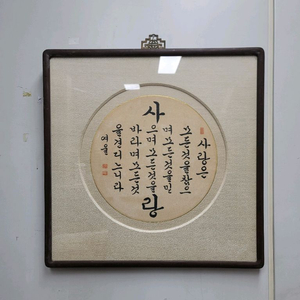 사랑
사랑은
모든것을참으
며모든것을믿
으며모든것을
바라며모든것
을견디느니라